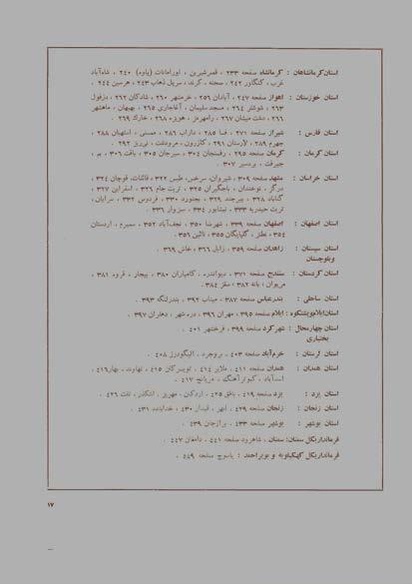 استان کرمانشاهان : کرمانشاه صفحه ۲۳۳ ، قصرشیرین ، اورامانات (پاوه) ۲۴۰ ، شاه‌آباد
غرب ، کنگاور ۲۴۲ ، سنقر ، کرند ، سرپل ذهاب ۲۴۳ ، هرسین ۲۴۴ .
استان خوزستان : اهواز صفحه ۲۴۷ ، آبادان ۲۵۶ ، خرمشهر ۲۶۰ ، شادگان ۲۶۲ ، دزفول
۲۶۳ ، شوشتر ۲۶۴ ، مسجد سلیمان ، آغاجاری ۲۶۵ ، بهبهان ، ماهشهر
۲۶۶ ، دشت میشان ۲۶۷ ، رامهرمز ، هویزه ۲۶۸ ، خارک ۲۶۹ .
استان فارس : شیراز صفحه ۲۷۱ ، فسا ۲۸۵ ، داراب ۲۸۶ ، ممسنی ، اصطهبان ۲۸۸ ،
جهرم ۲۸۹ ، لارستان ۲۹۱ ، کازرون ، مرودشت ، نی‌ریز ۲۹۲ .
استان کرمان : کرمان صفحه ۲۹۵ ، رفسنجان ۳۰۴ ، سیرجان ۳۰۵ ، بافت ۳۰۶ ، بم ،
جیرفت ، بردسیر ۳۰۷ .
استان خراسان : مشهد صفحه ۳۰۹ ، شیروان، سرخس، طبس ۳۲۲ ، قائنات، قوچان ۳۲۴ ،
درگز ، نوخندان ، باجگیران ۳۲۵ ، تربت جام ۳۲۶ ، اسفراین ۳۲۷ ،
گناباد ۳۲۸ ، بیرجند ۳۲۹ ، بجنورد ۳۳۰ ، فردوس ۳۳۲ ، سرایان ،
تربت حیدریه ۳۳۳ ، نیشابور ۳۳۴ ، سبزوار ۳۳۶ .
استان اصفهان : اصفهان صفحه ۳۳۹ ، شهرضا ۳۵۰ ، نجف‌آباد ۳۵۲ ، سمیرم ، اردستان
۳۵۴ ، نطنز ، گلپایگان ۳۵۵ ، نائین ۳۵۶ .
استان سیستان : زاهدان صفحه ۳۵۹ ، زابل ۳۶۶ ، خاش ۳۶۹ .
وبلوچستان
استان کردستان : سنندج صفحه ۳۷۱ ، دیواندره ، کامیاران ۳۸۰ ، بیجار ، قروه ۳۸۱ ،
مریوان ، بانه ۳۸۲ ، سقز ۳۸۴ .
استان ساحلی : بندرعباس صفحه ۳۸۷ ، میناب ۳۹۲ ، بندرلنگه ۳۹۳ .
استان ایلام‌وپشتکوه : ایلام صفحه ۳۹۵ ، مهران ۳۹۶ ، دره‌شهر ، دهلران ۳۹۷ .
استان چهارمحال : شهرکرد صفحه ۳۹۹ ، فرخشهر ۴۰۱ .
بختیاری
استان لرستان : خرم‌آباد صفحه ۴۰۳ ، بروجرد ، الیگودرز ۴۰۸ .
استان همدان : همدان صفحه ۴۱۱ ، ملایر ۴۱۴ ، تویسرکان ۴۱۵ ، نهاوند ، بهار ۴۱۶ ،
اسدآباد ، کبوترآهنگ ، مریانج ۴۱۷ .
استان یزد : یزد صفحه ۴۱۹ ، بافق ۴۲۵ ، اردکان ، مهریز ، اشکذر ، تفت ۴۲۶ .
استان زنجان : زنجان صفحه ۴۲۹ ، ابهر ، قیدار ۴۳۰ ، خدابنده ۴۳۱ .
استان بوشهر : بوشهر صفحه ۴۳۳ ، برازجان ۴۳۹ .
فرمانداریکل سمنان: سمنان ، شاهرود صفحه ۴۴۱ ، دامغان ۴۴۷ .
فرمانداریکل کهکیلویه و بویراحمد : یاسوج صفحه ۴۴۹ .
۱۷